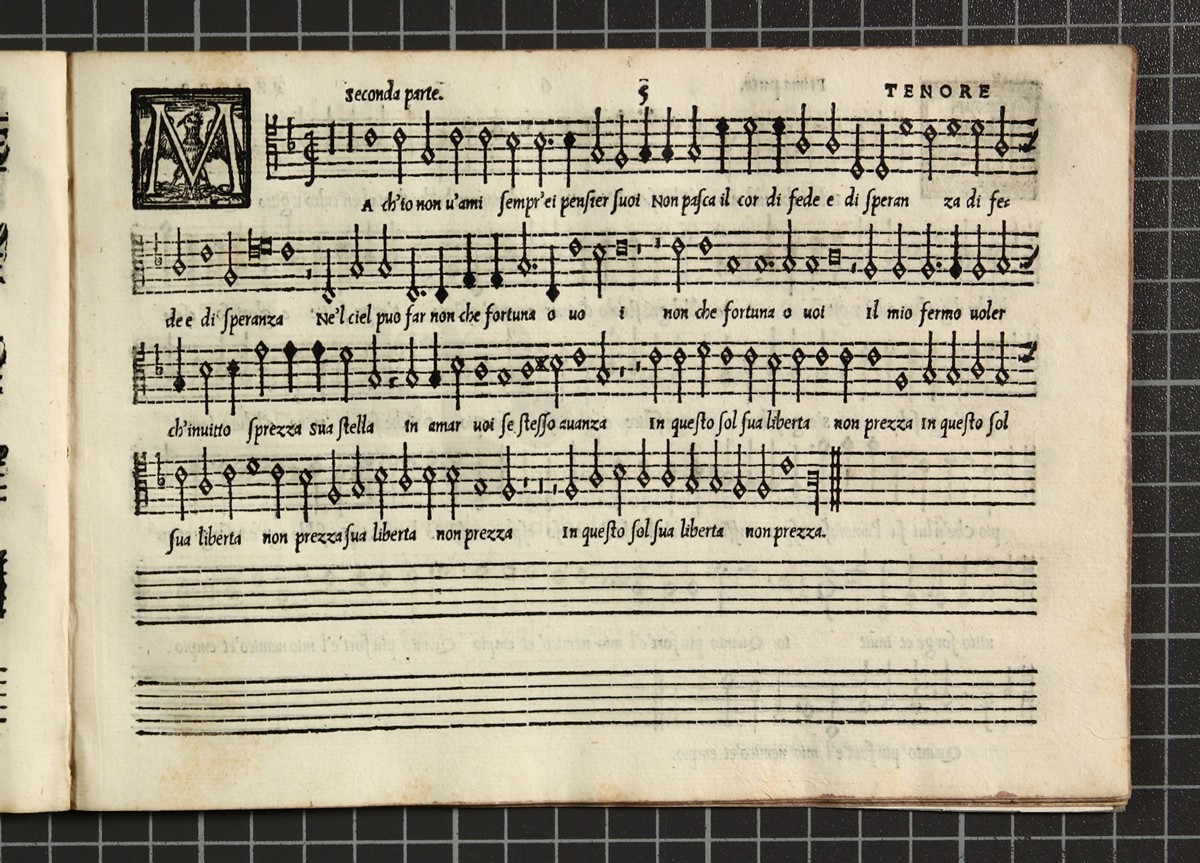 Seconda parte. 5 TENORE
M
A ch'io non u'ami sempr'ei pensier suoi Non pasca il cor di fede e di speran za di fe=
de e di speranza Ne'l ciel puo far non che fortuna o uo i non che fortuna o uoi Il mio fermo uoler
ch'inuitto sprezza sua stella in amar uoi se stesso auanza In questo sol sua liberta non prezza In questo sol
sua liberta non prezza sua liberta non prezza In questo sol sua liberta non prezza.